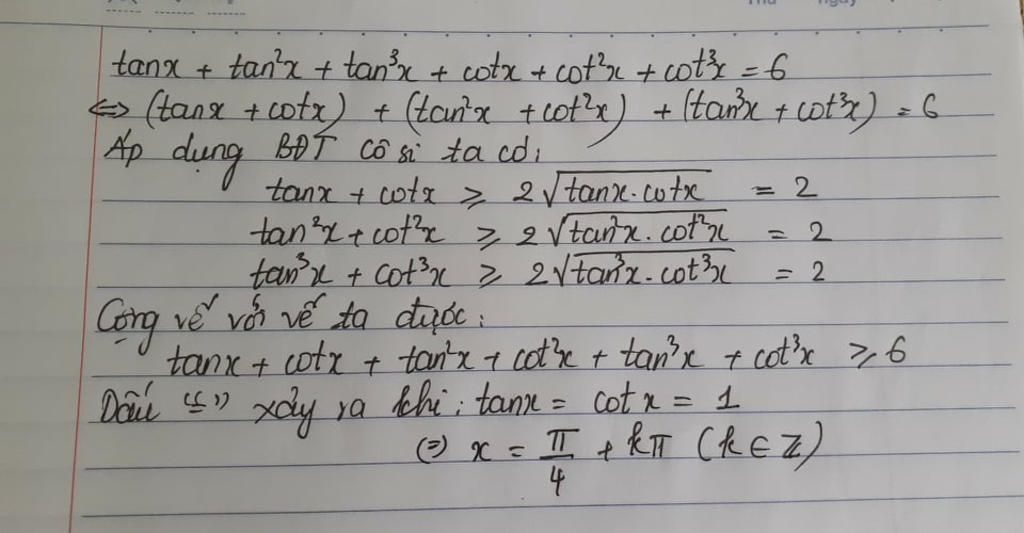 tanx + tan²x + tan³x + cotx + cot²x + cot³x = 6
⇔ (tanx + cotx) + (tan²x + cot²x) + (tan³x + cot³x) = 6
Áp dụng BĐT Cô si ta có:
tanx + cotx ≥ 2√(tanx.cotx) = 2
tan²x + cot²x ≥ 2√(tan²x.cot²x) = 2
tan³x + cot³x ≥ 2√(tan³x.cot³x) = 2
Cộng vế với vế ta được:
tanx + cotx + tan²x + cot²x + tan³x + cot³x ≥ 6
Dấu "=" xảy ra khi: tanx = cotx = 1
⇔ x = π/4 + kπ (k ∈ Z)